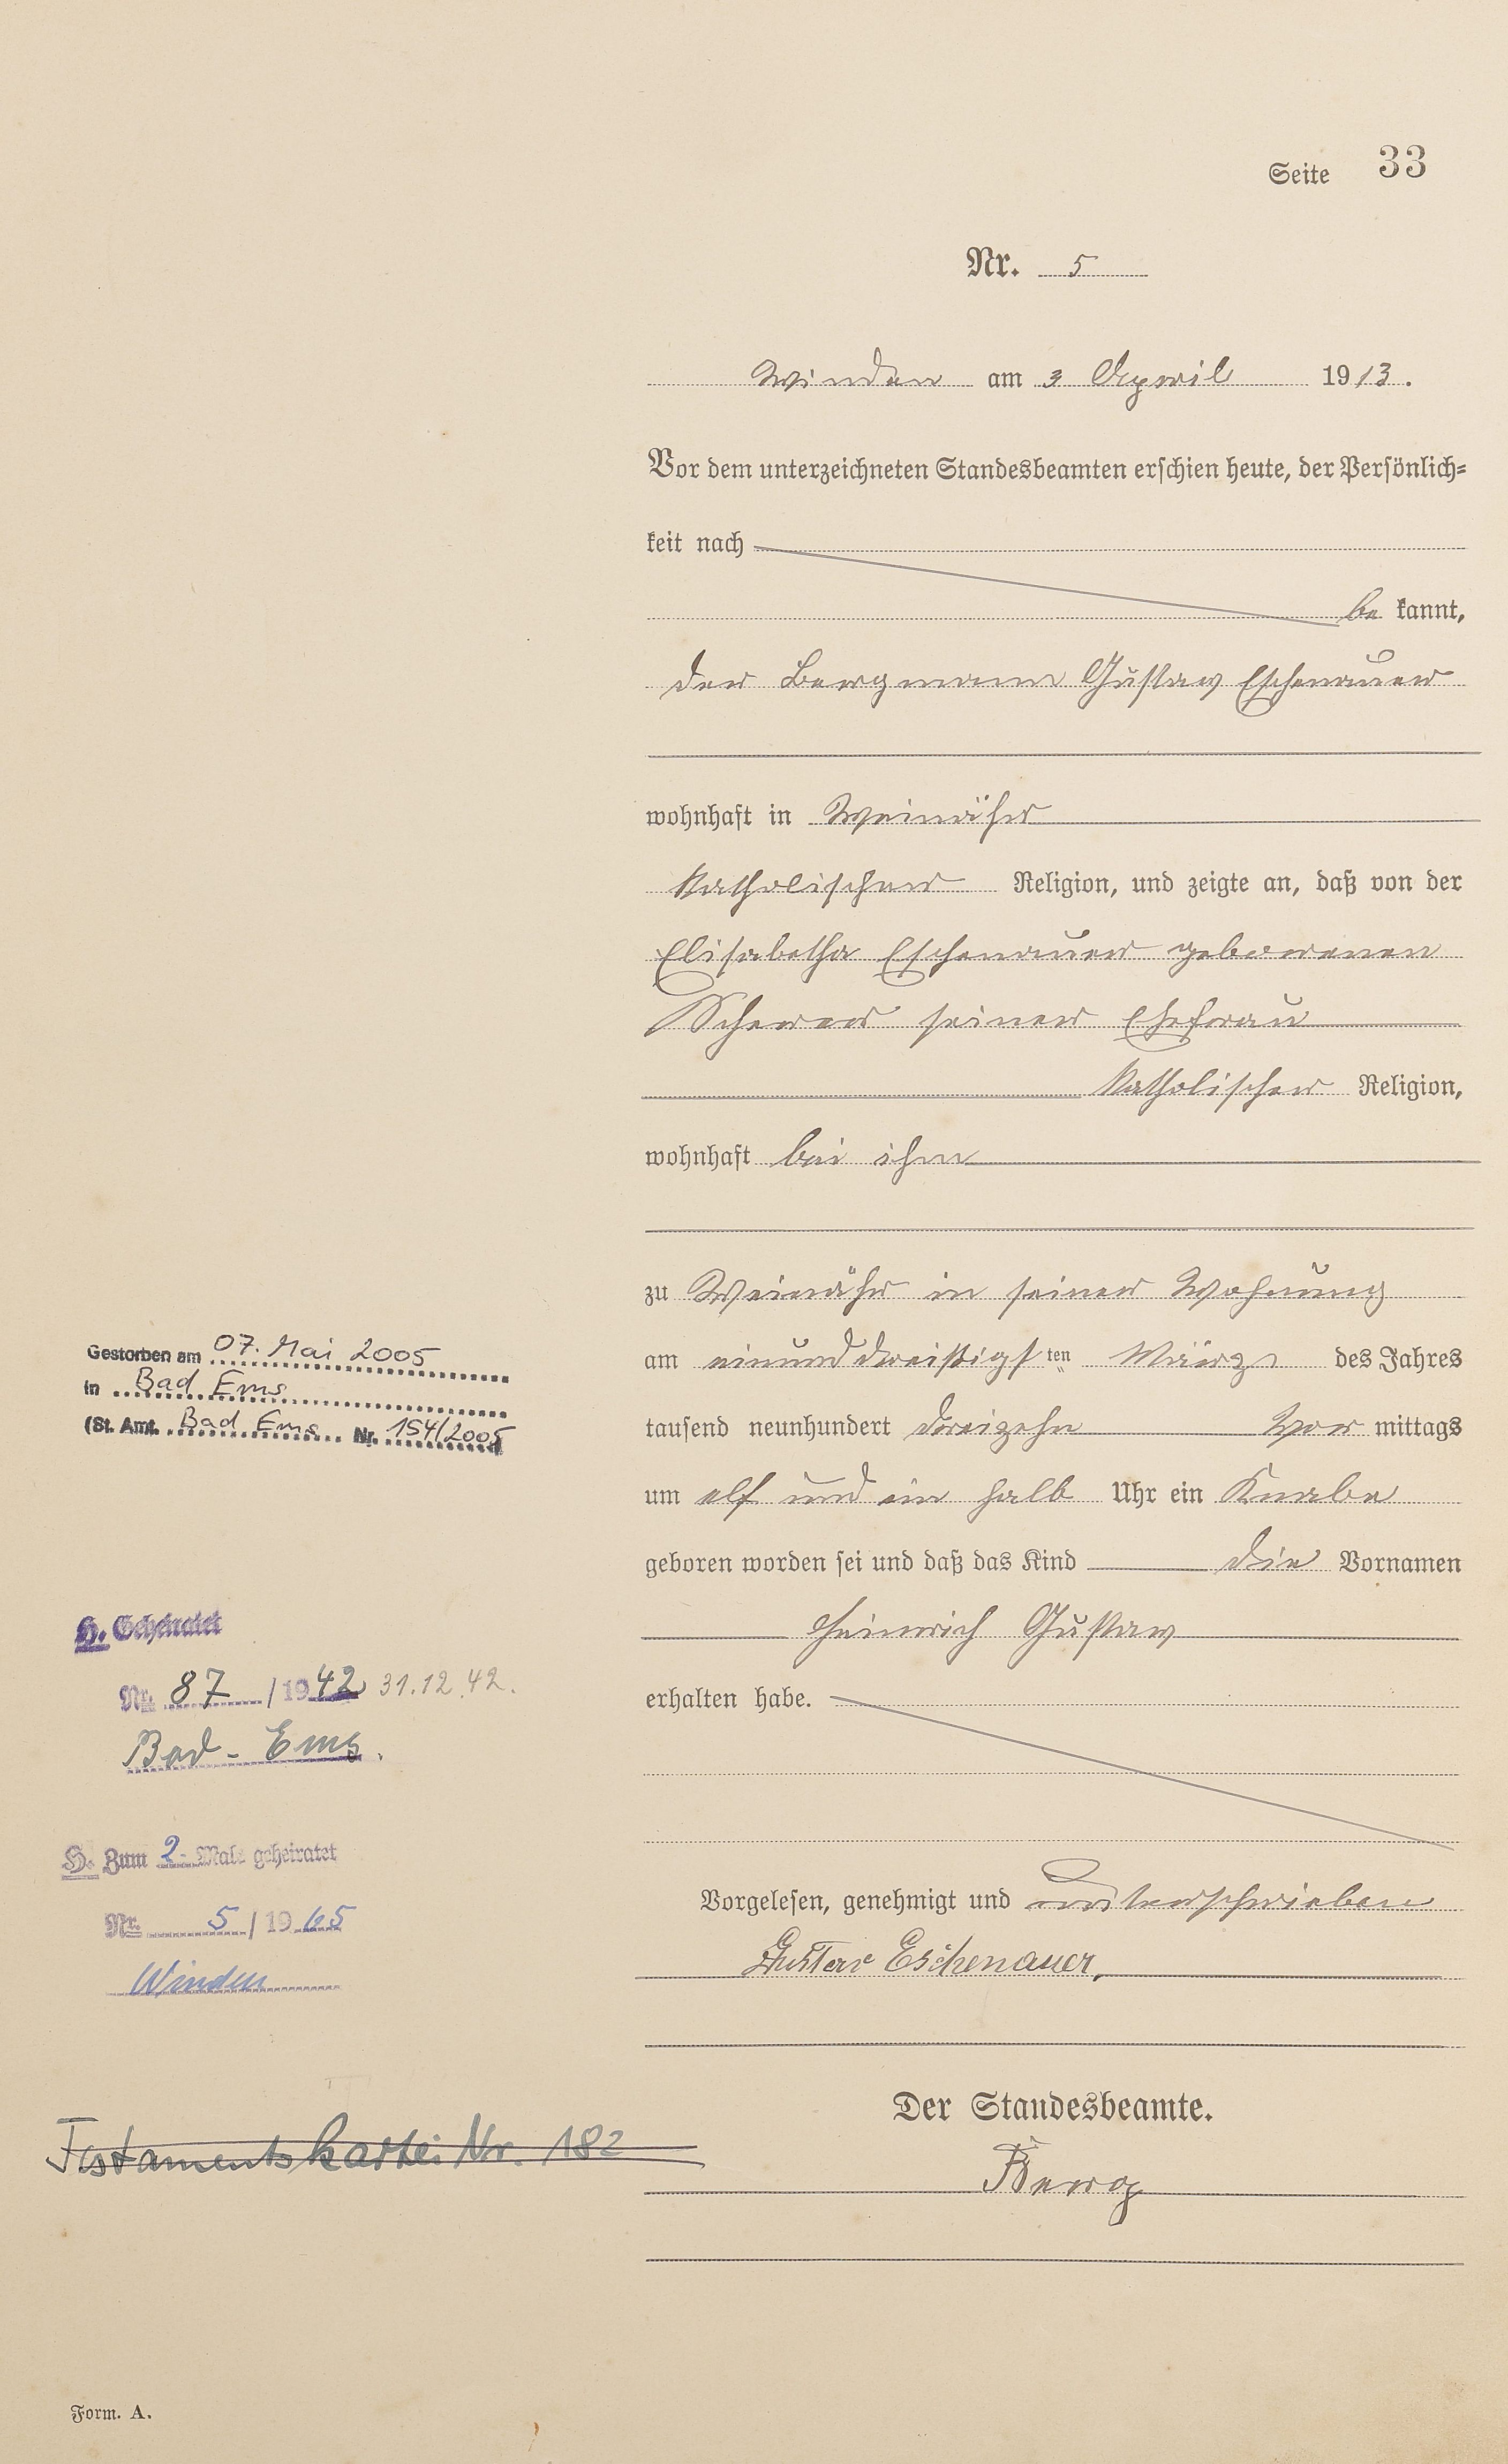 Seite 33
Nr. 5
Winden am 3 April 1913.
Vor dem unterzeichneten Standesbeamten erschien heute, der Persönlich=
keit nach
be kannt,
der Bergmann Gustav Eschenauer
wohnhaft in Weinähr
katholischer Religion, und zeigte an, daß von der
Elisabetha Eschenauer geborenen
Scherer seiner Ehefrau
katholischer Religion,
wohnhaft bei ihm
zu Weinähr in seiner Wohnung
am einunddreißigsten März des Jahres
tausend neunhundert dreizehn Vor mittags
um elf und ein halb Uhr ein Knabe
geboren worden sei und daß das Kind die Vornamen
Heinrich Gustav
erhalten habe.
Vorgelesen, genehmigt und unterschrieben
Gustav Eschenauer,
Der Standesbeamte.
Berg
Gestorben am 07. Mai 2005
in Bad Ems
(St. Amt. Bad Ems Nr. 154/2005
H. Geheiratet
Nr. 87 / 1942 31.12.42.
Bad-Ems.
H. Zum 2. Male geheiratet
Nr. 5 / 1965
Winden
Testamentskartei Nr. 182
Form. A.